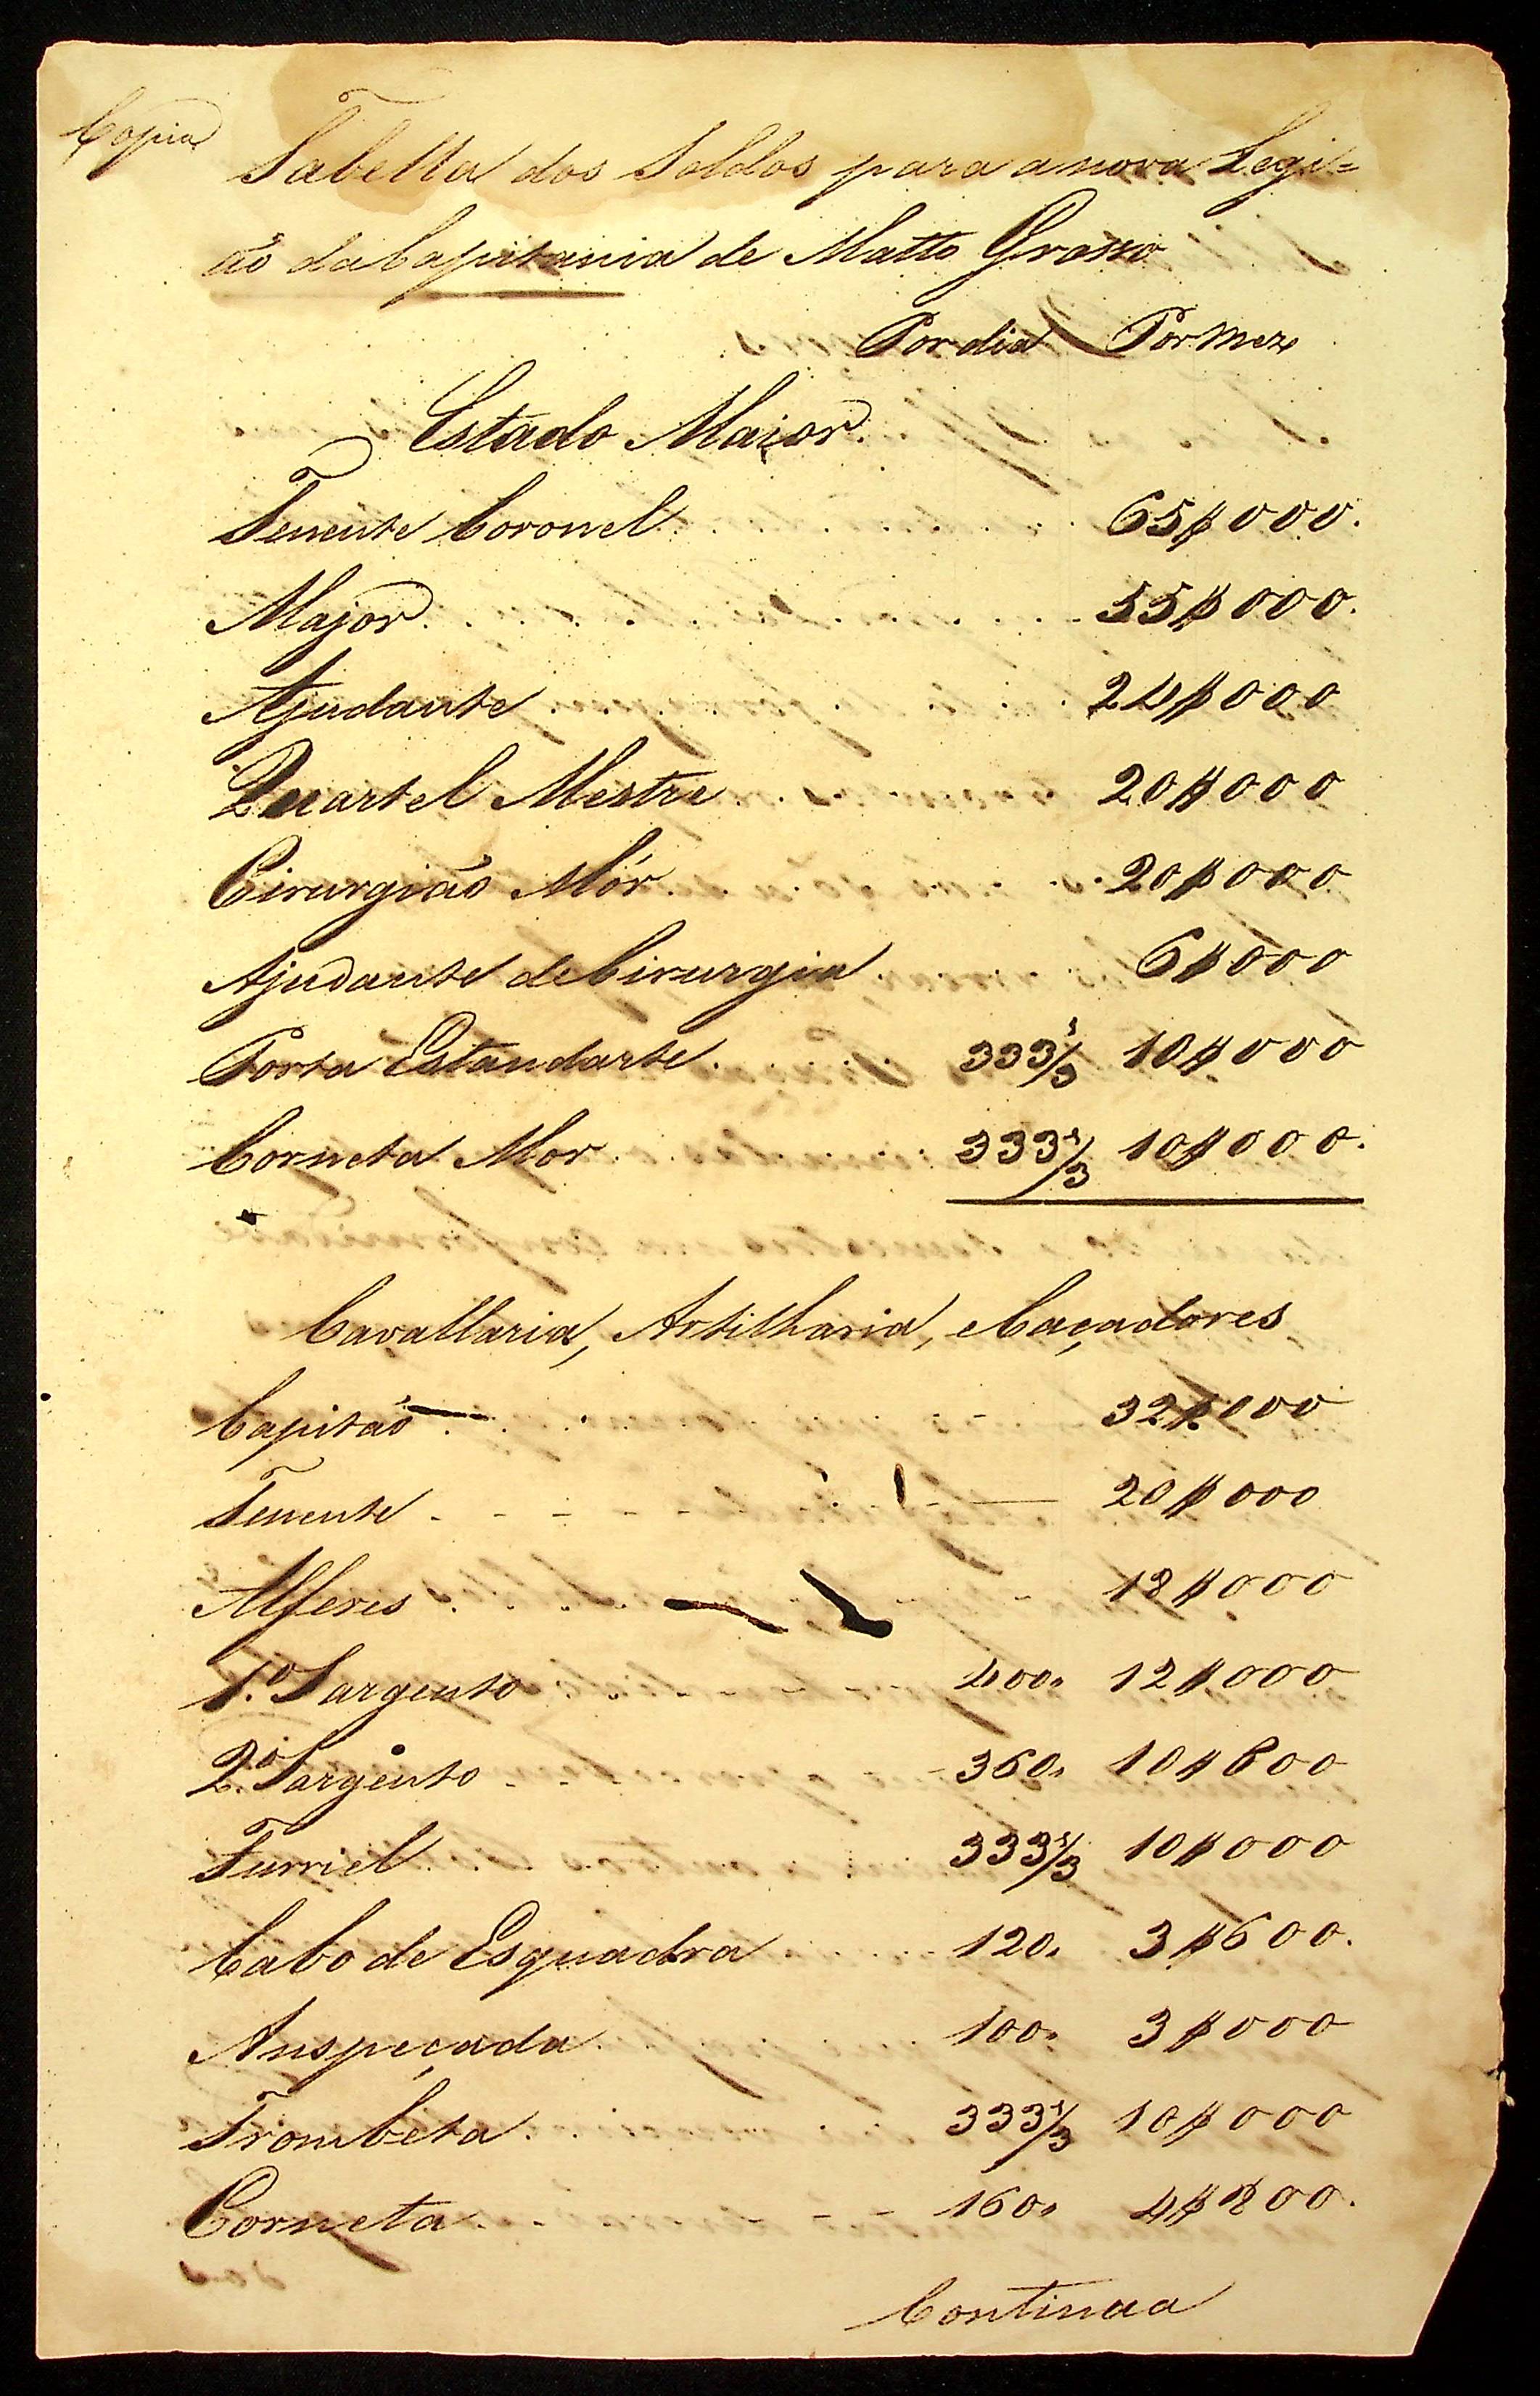 Copia
Tabella dos Soldos para a nova Legi=
ão da Capitania de Matto Grosso
Por dia Por Mez
Estado Maior
Tenente Coronel 65$000.
Major 55$000.
Ajudante 24$000
Quartel Mestre 20$000
Cirurgião Mór 20$000
Ajudante de Cirurgia 6$000
Porta Estandarte 333 1/3 10$000
Corneta Mor 333 1/3 10$000.
Cavallaria, Artilharia, e Caçadores
Capitão 32$000
Tenente 20$000
Alferes 18$000
1.º Sargento 400, 12$000
2.º Sargento 360, 10$800
Furriel 333 1/3 10$000
Cabo de Esquadra 120, 3$600.
Anspeçada 100, 3$000
Trombeta 333 1/3 10$000
Corneta 160, 4$800.
Continua